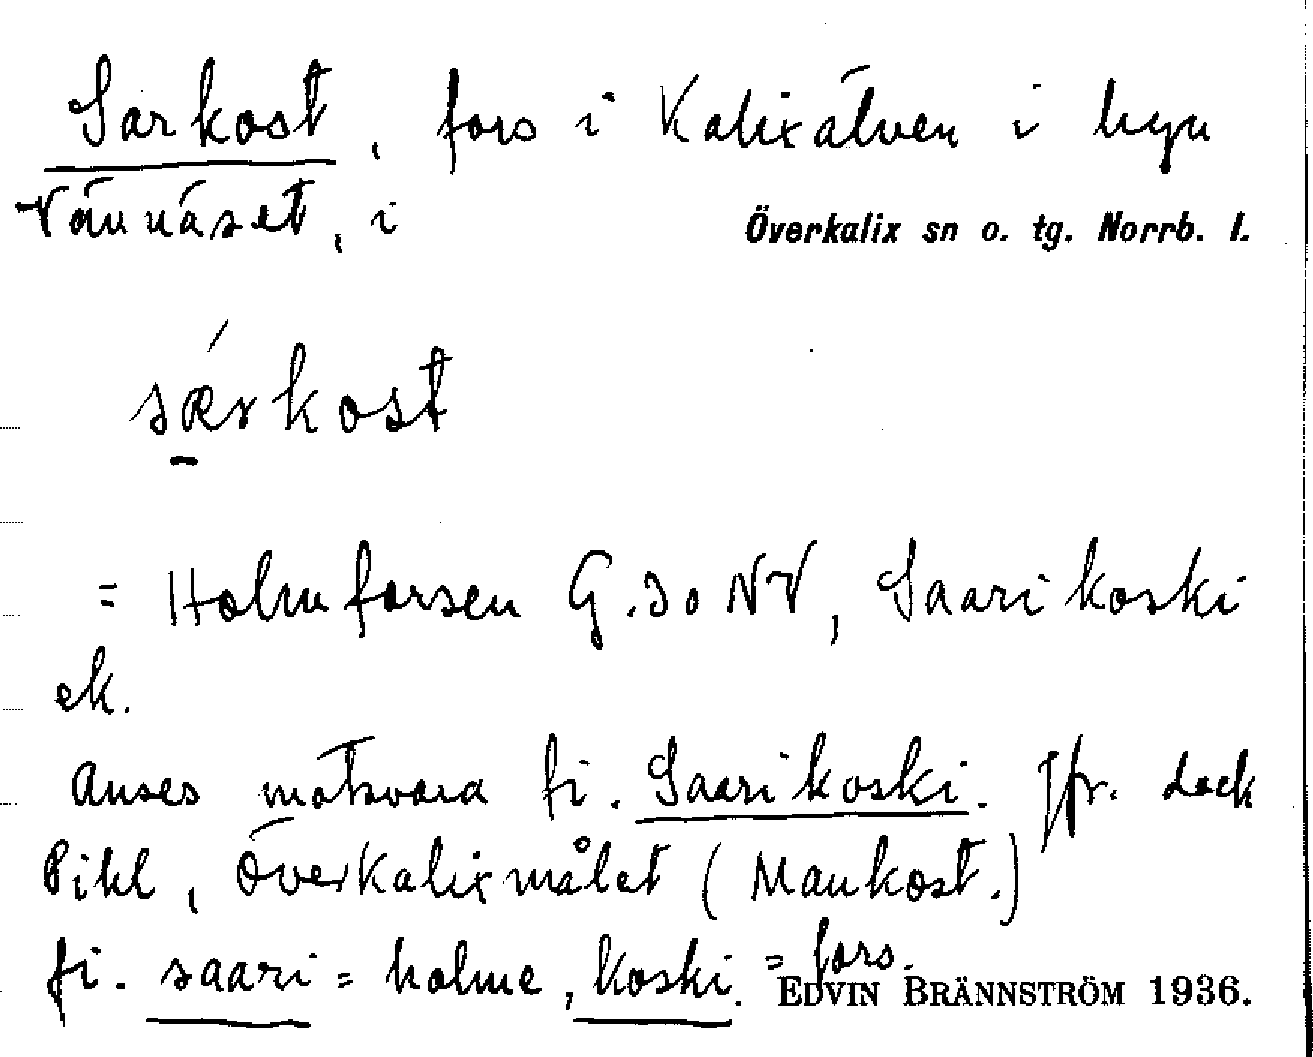 Särkost, fors i Kalixälven i byn
Vännäset, i Överkalix sn o. tg. Norrb. l.
sǽrkost
= Holmforsen G. 30 NV, Saarikoski
ek.
Anses motsvara fi. Saarikoski. Jfr. dock
Pihl, Överkalixmålet (Mankost.)
fi. saari = holme, koski = fors.
EDVIN BRÄNNSTRÖM 1936.